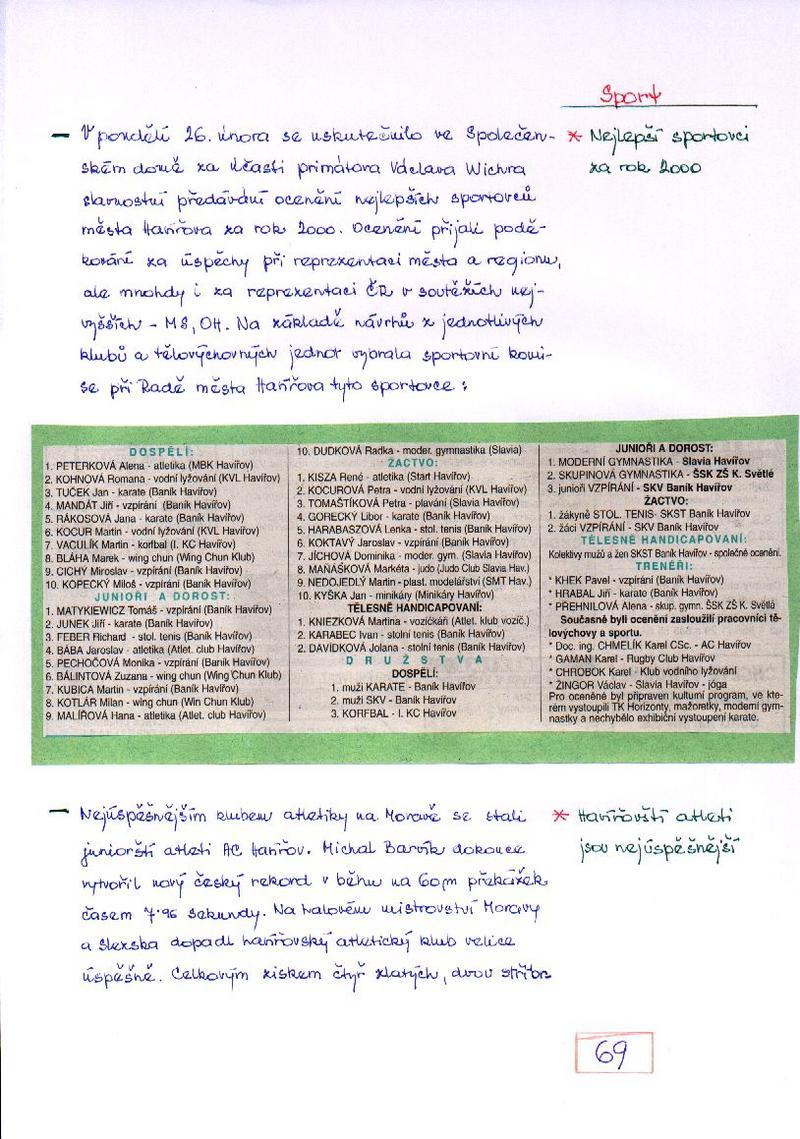 Sport
– V pondělí 26. února se uskutečnilo ve Společen-
ském domě za účasti primátora Václava Wichra
slavnostní předávání ocenění nejlepších sportovců
města Havířova za rok 2000. Ocenění přijali podě-
kování za úspěchy při reprezentaci města a regionu,
ale mnohdy i za reprezentaci ČR v soutěžích nej-
vyšších – MS, OH. Na základě návrhů z jednotlivých
klubů a tělovýchovných jednot vybrala sportovní komi-
se při Radě města Havířova tyto sportovce:
* Nejlepší sportovci
za rok 2000
DOSPĚLÍ:
1. PETERKOVÁ Alena - atletika (MBK Havířov)
2. KOHNOVÁ Romana - vodní lyžování (KVL Havířov)
3. TUČEK Jan - karate (Baník Havířov)
4. MANDÁT Jiří - vzpírání (Baník Havířov)
5. RÁKOSOVÁ Jana - karate (Baník Havířov)
6. KOCUR Martin - vodní lyžování (KVL Havířov)
7. VACULÍK Martin - korfbal (I. KC Havířov)
8. BLÁHA Marek - wing chun (Wing Chun Klub)
9. CICHY Miroslav - vzpírání (Baník Havířov)
10. KOPECKÝ Miloš - vzpírání (Baník Havířov)
JUNIOŘI A DOROST:
1. MATYKIEWICZ Tomáš - vzpírání (Baník Havířov)
2. JUNEK Jiří - karate (Baník Havířov)
3. FEBER Richard - stol. tenis (Baník Havířov)
4. BÁBA Jaroslav - atletika (Atlet. club Havířov)
5. PECHOČOVÁ Monika - vzpírání (Baník Havířov)
6. BÁLINTOVÁ Zuzana - wing chun (Wing Chun Klub)
7. KUBICA Martin - vzpírání (Baník Havířov)
8. KOTLÁR Milan - wing chun (Win Chun Klub)
9. MALÍŘOVÁ Hana - atletika (Atlet. club Havířov)
10. DUDKOVÁ Radka - moder. gymnastika (Slavia)
ŽACTVO:
1. KISZA René - atletika (Start Havířov)
2. KOCUROVÁ Petra - vodní lyžování (KVL Havířov)
3. TOMAŠTÍKOVÁ Petra - plavání (Slavia Havířov)
4. GORECKÝ Libor - karate (Baník Havířov)
5. HARABASZOVÁ Lenka - stol. tenis (Baník Havířov)
6. KOKTAVÝ Jaroslav - vzpírání (Baník Havířov)
7. JÍCHOVÁ Dominika - moder. gym. (Slavia Havířov)
8. MAŇÁSKOVÁ Markéta - judo (Judo Club Slavia Hav.)
9. NEDOJEDLÝ Martin - plast. modelářství (SMT Hav.)
10. KYŠKA Jan - minikáry (Minikáry Havířov)
TĚLESNĚ HANDICAPOVANÍ:
1. KNIEZKOVÁ Martina - vozíčkáři (Atlet. klub vozíč.)
2. KARABEC Ivan - stolní tenis (Baník Havířov)
2. DAVÍDKOVÁ Jolana - stolní tenis (Baník Havířov)
DRUŽSTVA
DOSPĚLÍ:
1. muži KARATE - Baník Havířov
2. muži SKV - Baník Havířov
3. KORFBAL - I. KC Havířov
JUNIOŘI A DOROST:
1. MODERNÍ GYMNASTIKA - Slavia Havířov
2. SKUPINOVÁ GYMNASTIKA - ŠSK ZŠ K. Světlé
3. junioři VZPÍRÁNÍ - SKV Baník Havířov
ŽACTVO:
1. žákyně STOL. TENIS- SKST Baník Havířov
2. žáci VZPÍRÁNÍ - SKV Baník Havířov
TĚLESNĚ HANDICAPOVANÍ:
Kolektivy mužů a žen SKST Baník Havířov - společné ocenění.
TRENÉŘI:
* KHEK Pavel - vzpírání (Baník Havířov)
* HRABAL Jiří - karate (Baník Havířov)
* PŘEHNILOVÁ Alena - skup. gymn. ŠSK ZŠ K. Světlá
Současně byli oceněni zasloužilí pracovníci tě-
lovýchovy a sportu.
* Doc. ing. CHMELÍK Karel CSc. - AC Havířov
* GAMAN Karel - Rugby Club Havířov
* CHROBOK Karel - Klub vodního lyžování
* ŽINGOR Václav - Slavia Havířov - jóga
Pro oceněné byl připraven kulturní program, ve kte-
rém vystoupili TK Horizonty, mažoretky, moderní gym-
nastky a nechybělo exhibiční vystoupení karate.
– Nejúspěšnějším klubem atletiky na Moravě se stali
juniorští atleti AC Havířov. Michal Barvík dokonce
vytvořil nový český rekord v běhu na 60m překážek
časem 7'96 sekundy. Na halovém mistrovství Moravy
a Slezska dopadl havířovský atletický klub velice
úspěšně. Celkovým ziskem čtyř zlatých, dvou stříbr
* Havířovští atleti
jsou nejúspěšnější
69